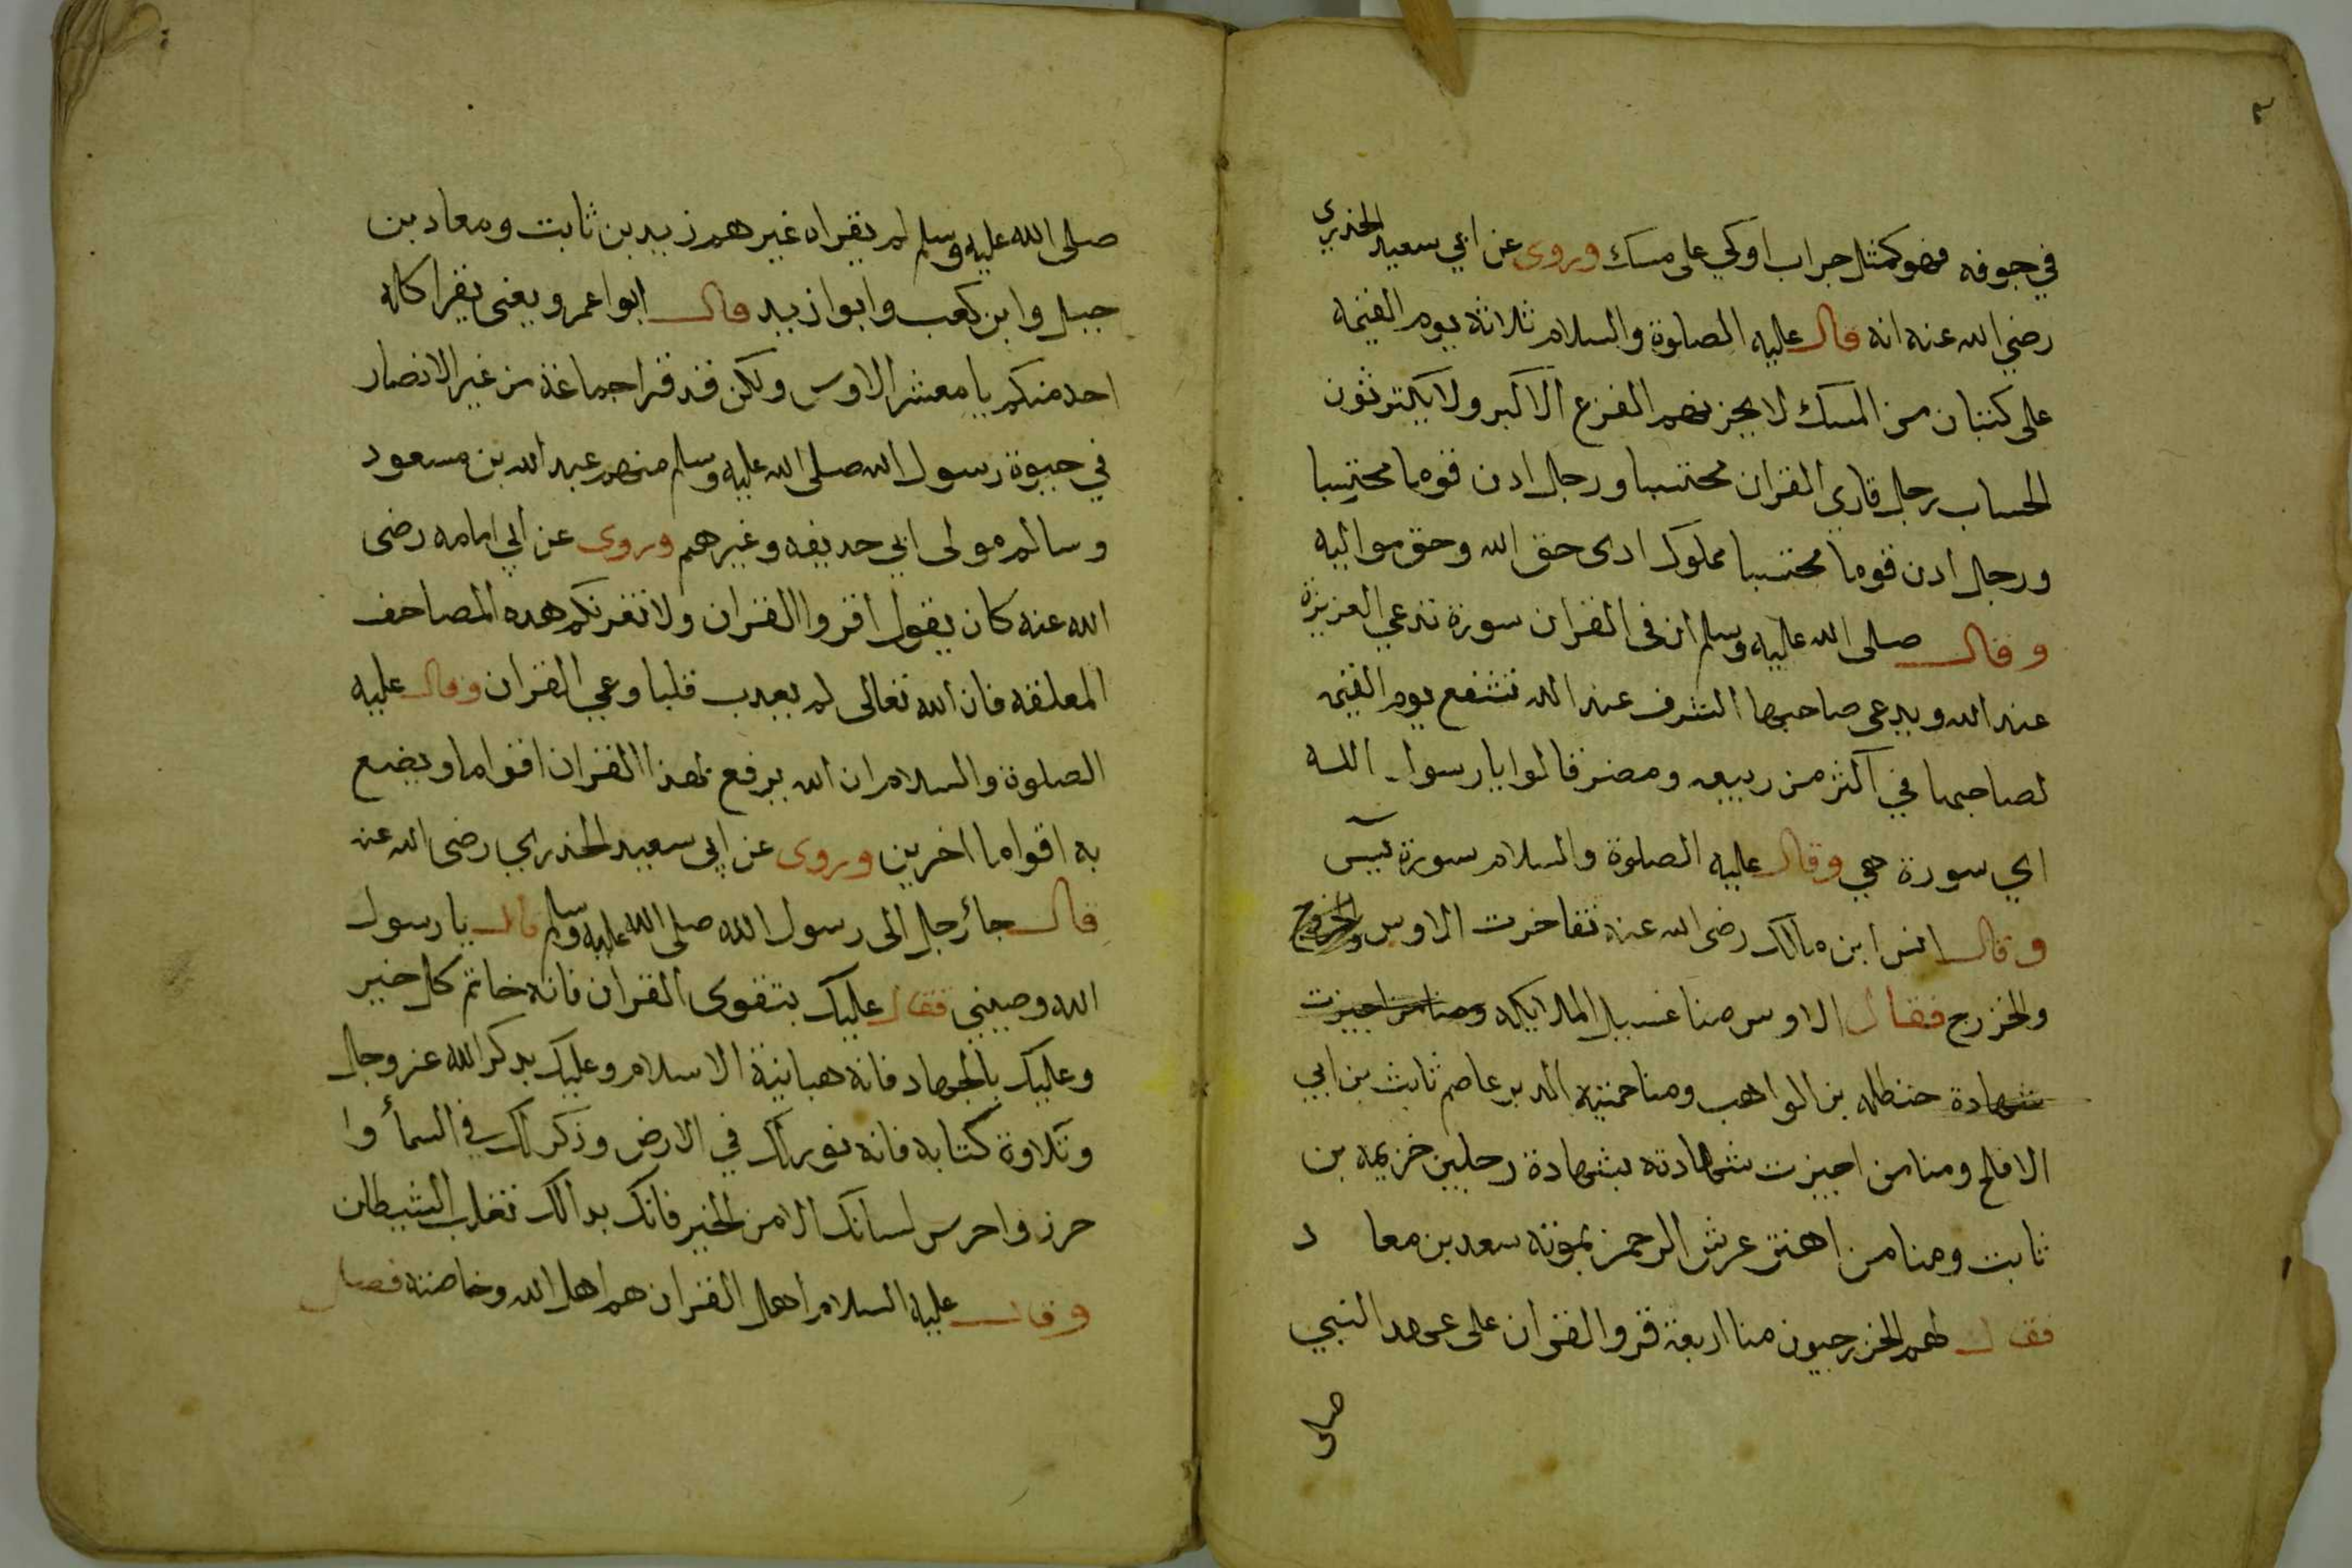 ٣
في جوفه فهو كمثل جراب اوكي على مسك وروى عن ابي سعيد الخدري
رضي الله عنه انه قال عليه الصلوة والسلام ثلاثة يوم القيمة
على كثبان من المسك لا يحزنهم الفزع الاكبر ولا يكترثون
الحساب رجل قارى القران محتسبا ورجل ادن قوما محتسبا
ورجل ادن قوما محتسبا مملوك ادى حق الله وحق مواليه
وقال صلى الله عليه وسلم ان في القران سورة تدعي العزيزة
عند الله ويدعى صاحبها الشرف عند الله تشفع يوم القيمة
لصاحبها في اكثر من ربيعه ومضر قالوا يا رسول الله
اي سورة هي وقال عليه الصلوة والسلام سورة يس
وقال انس ابن مالك رضى الله عنه تفاخرت الاوس والخزرج
والخزرج فقال الاوس منا غسيل الملايكه ومنا من اجيزت
شهادة حنظله بن الواهب ومنا حمته الدبر عاصم ثابت بن ابي
الافلح ومنا من اجيزت شهادته بشهادة رجلين خزيمه بن
ثابت ومنا من اهتز عرش الرحمن بموته سعد بن معاد
فقال لهم الخزرجيون منا اربعة قروا القران على عهد النبي
صلى
صلى الله عليه وسلم لم يقراه غيرهم زيد بن ثابت ومعاد بن
جبل وابن كعب وابوا زيد قال ابوا عمرو يعنى يقرا كاله
احد منكم يا معشر الاوس ولكن قد قرا جماعة من غير الانصار
في حيوة رسول الله صلى الله عليه وسلم منهم عبد الله بن مسعود
وسالم مولى ابي حديفه وغيرهم وروى عن ابي امامه رضى
الله عنه كان يقول اقروا القران ولا تغرنكم هده المصاحف
المعلقه فان الله تعالى لم يعدب قلبا وعي القران وقال عليه
الصلوة والسلام ان الله يرفع لهذا القران اقواما ويضع
به اقواما اخرين وروى عن ابي سعيد الخدري رضى الله عنه
قال جأ رجل الى رسول الله صلى الله عليه وسلم قال يا رسول
الله وصيني فقال عليك بتقوى القران فانه خاتم كل خير
وعليك بالجهاد فانه هبانية الاسلام وعليك بدكر الله عز وجل
وتلاوة كتابه فانه نور لك في الارض وذكر لك في السمأ وا
حرز واحرس لسانك الا من الخير فانك بدالك تغلب الشيطان
وقال عليه السلام اهل القران هم اهل الله وخاصته فصل